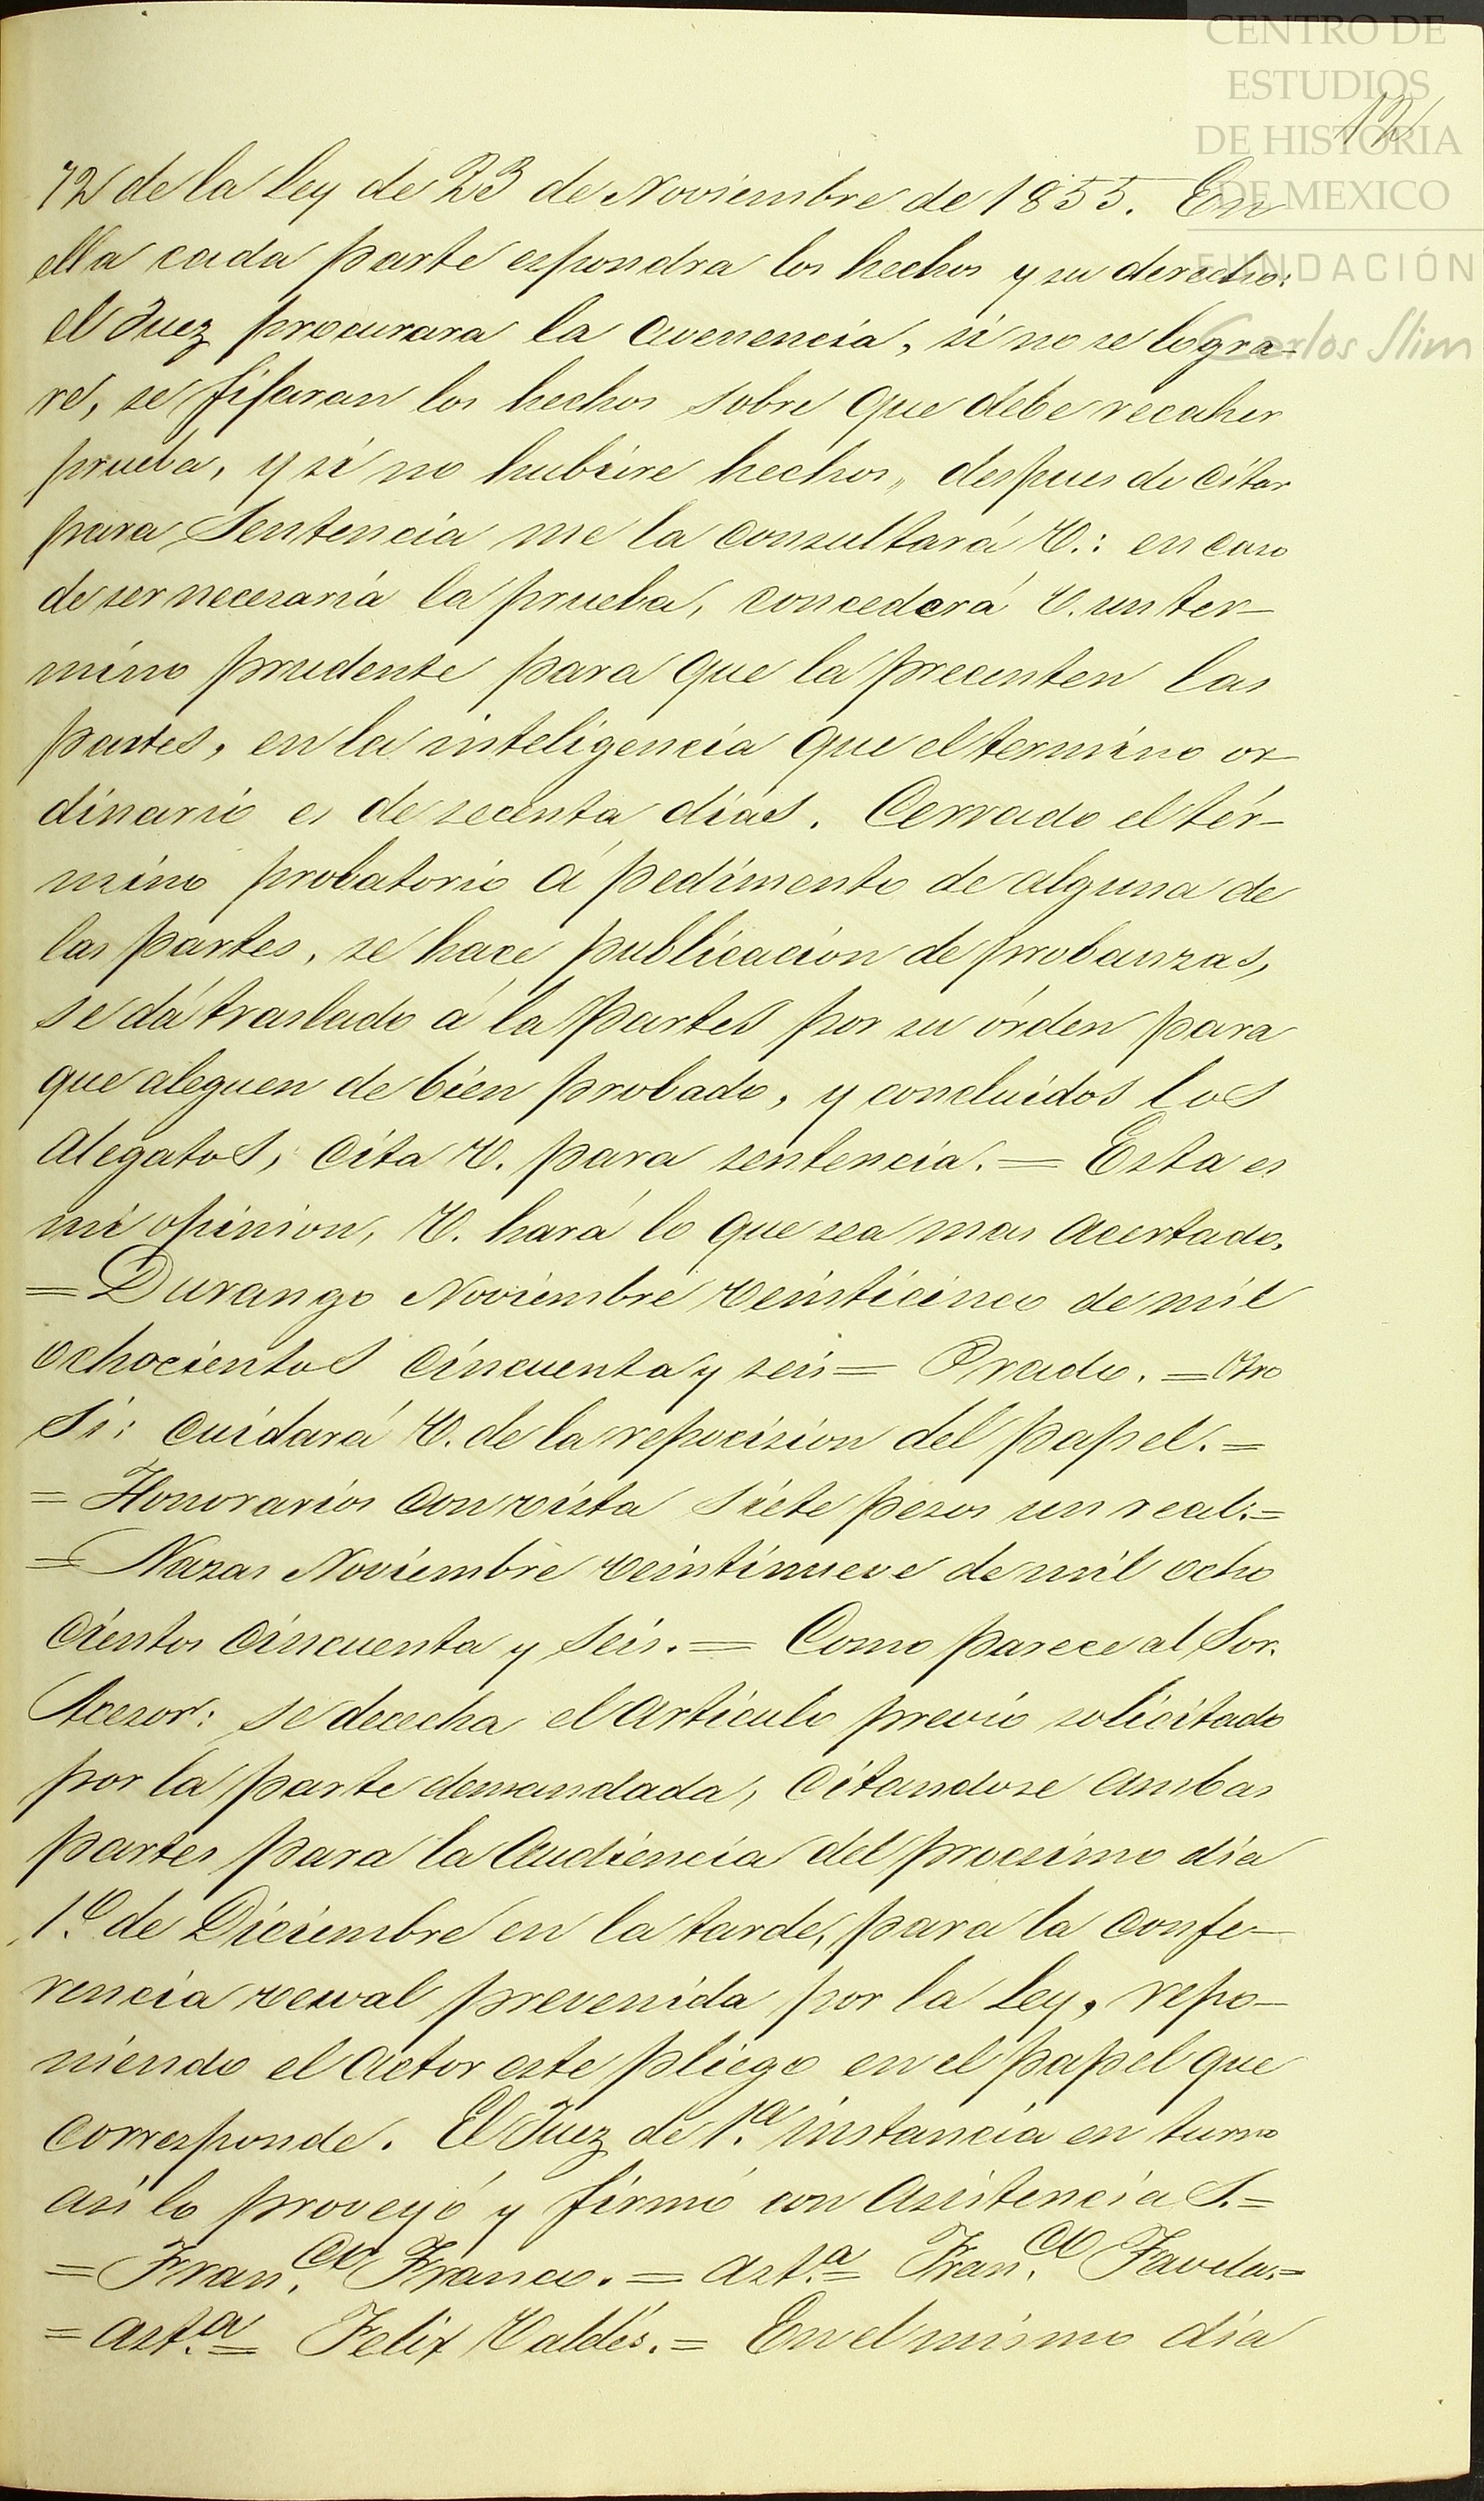 CENTRO DE
ESTUDIOS
DE HISTORIA
DE MEXICO
FUNDACIÓN
Carlos Slim
12
72 de la Ley de 23 de Noviembre de 1855. En
ella cada parte espondra los hechos y su derecho:
el Juez procurara la avenencia, si no se logra-
re, se fifaran los hechos sobre que debe recaher
prueba, y si no hubiere hechos, despues de citar
para Sentencia me la consultará V.: en caso
de ser necesaria la prueba, concederá V. un ter-
mino prudente para que la precenten las
partes, en la inteligencia que el termino or-
dinario es de secenta dias. Cerrado el tér-
mino probatorio á pedimento de alguna de
las partes, se hace publicacion de probanzas,
se dá traslado á la partes por su órden para
que aleguen de bien probado, y concluidos los
alegatos, cita V. para sentencia. = Esta es
mi opinion, V. hará lo que sea mas acertado.
= Durango Noviembre veinticinco de mil
ochocientos cincuenta y seis = Prado. = Otro
Si: cuidará V. de la repocision del papel. =
= Honorarios con vista siete pesos un real. =
= Nazas Noviembre veintinueve de mil ocho
cientos cincuenta y seis. = Como parece al Sor.
Acesor: se dececha el articulo previo solicitado
por la parte demandada, citandose ambas
partes para la Audiencia del procsimo dia
1.º de Diciembre en la tarde, para la confe-
rencia verval prevenida por la Ley, repo-
niendo el actor este pliego en el papel que
corresponde. El Juez de 1.ª instancia en turno
asi lo proveyó y firmó con asistencia S. =
= Fran.co Franco. = ast.a = Fran.co Favela. =
= ast.a = Felix Valdés. = En el mismo dia